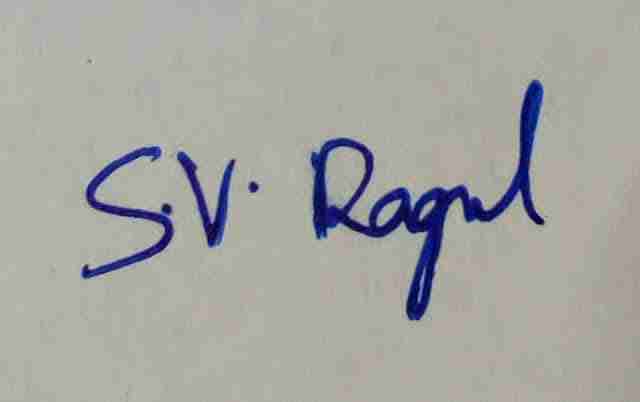 S.V. Ragul